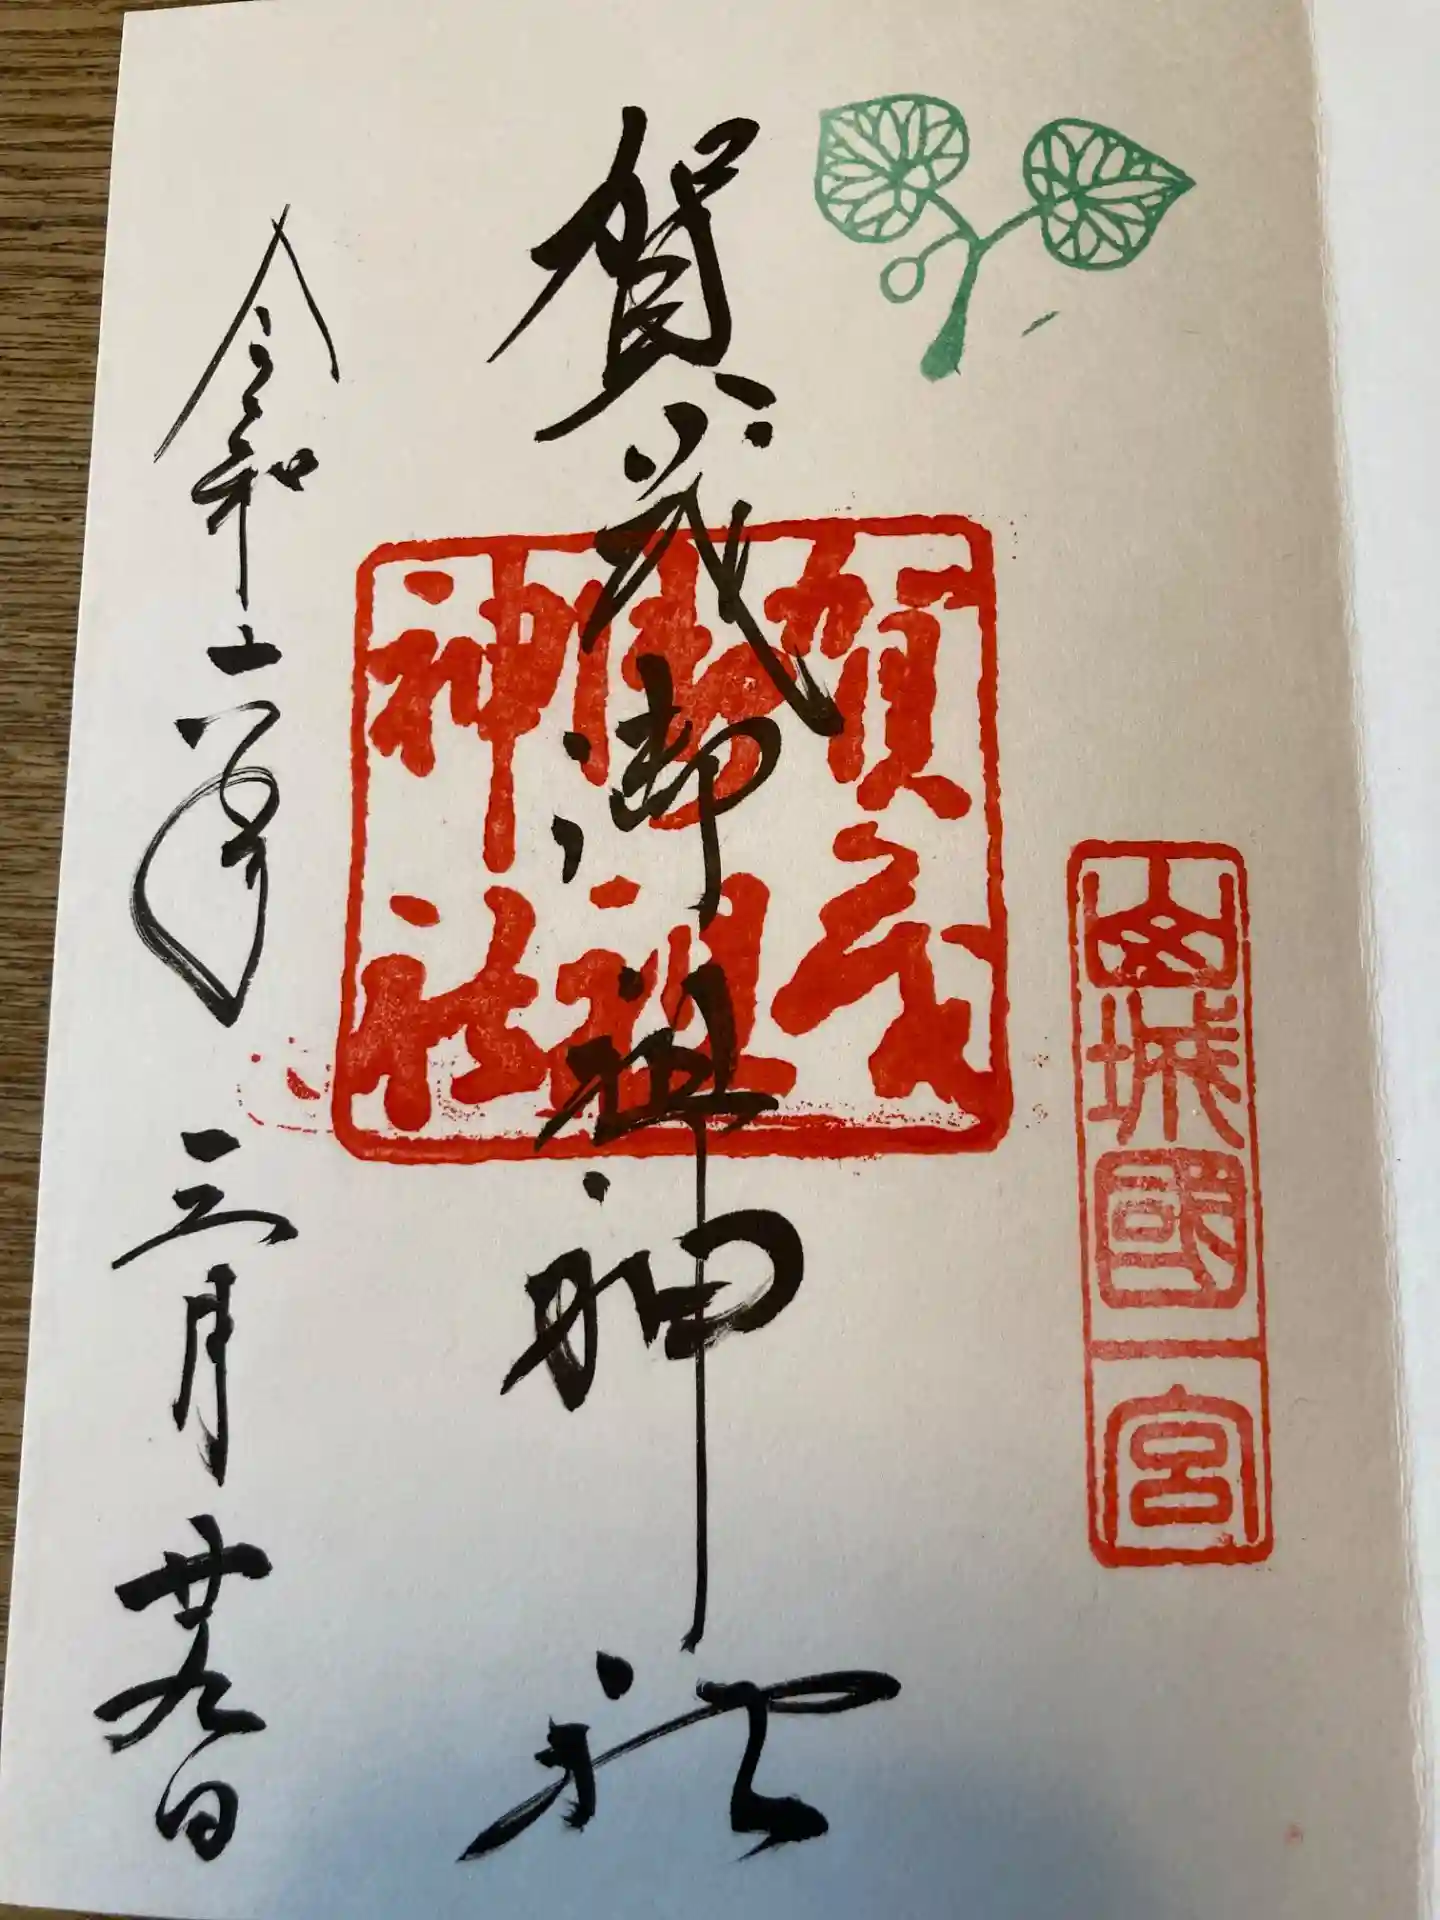 山城國一宮
賀茂御祖神社
賀茂御祖神社
令和六年三月廿九日